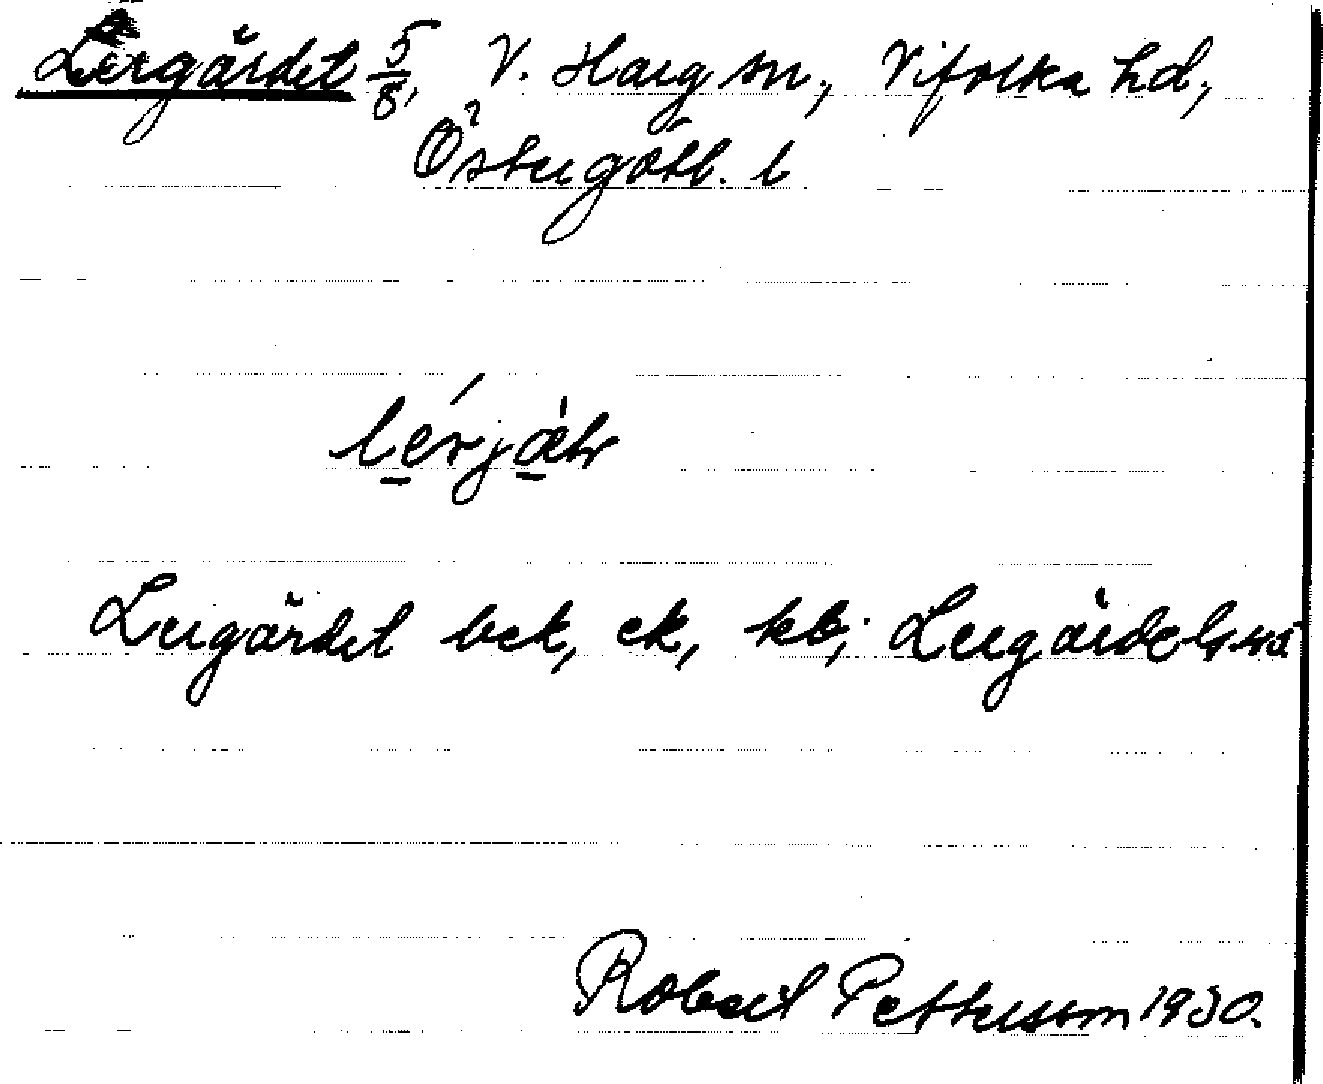 Lergärdet 5/8, V. Harg sn, Vifolka hd,
Östergötl. l
lérjæ̀lr
Lergärdet bek, ek, kb; Lergärdet
Robert Pettersson 1930.